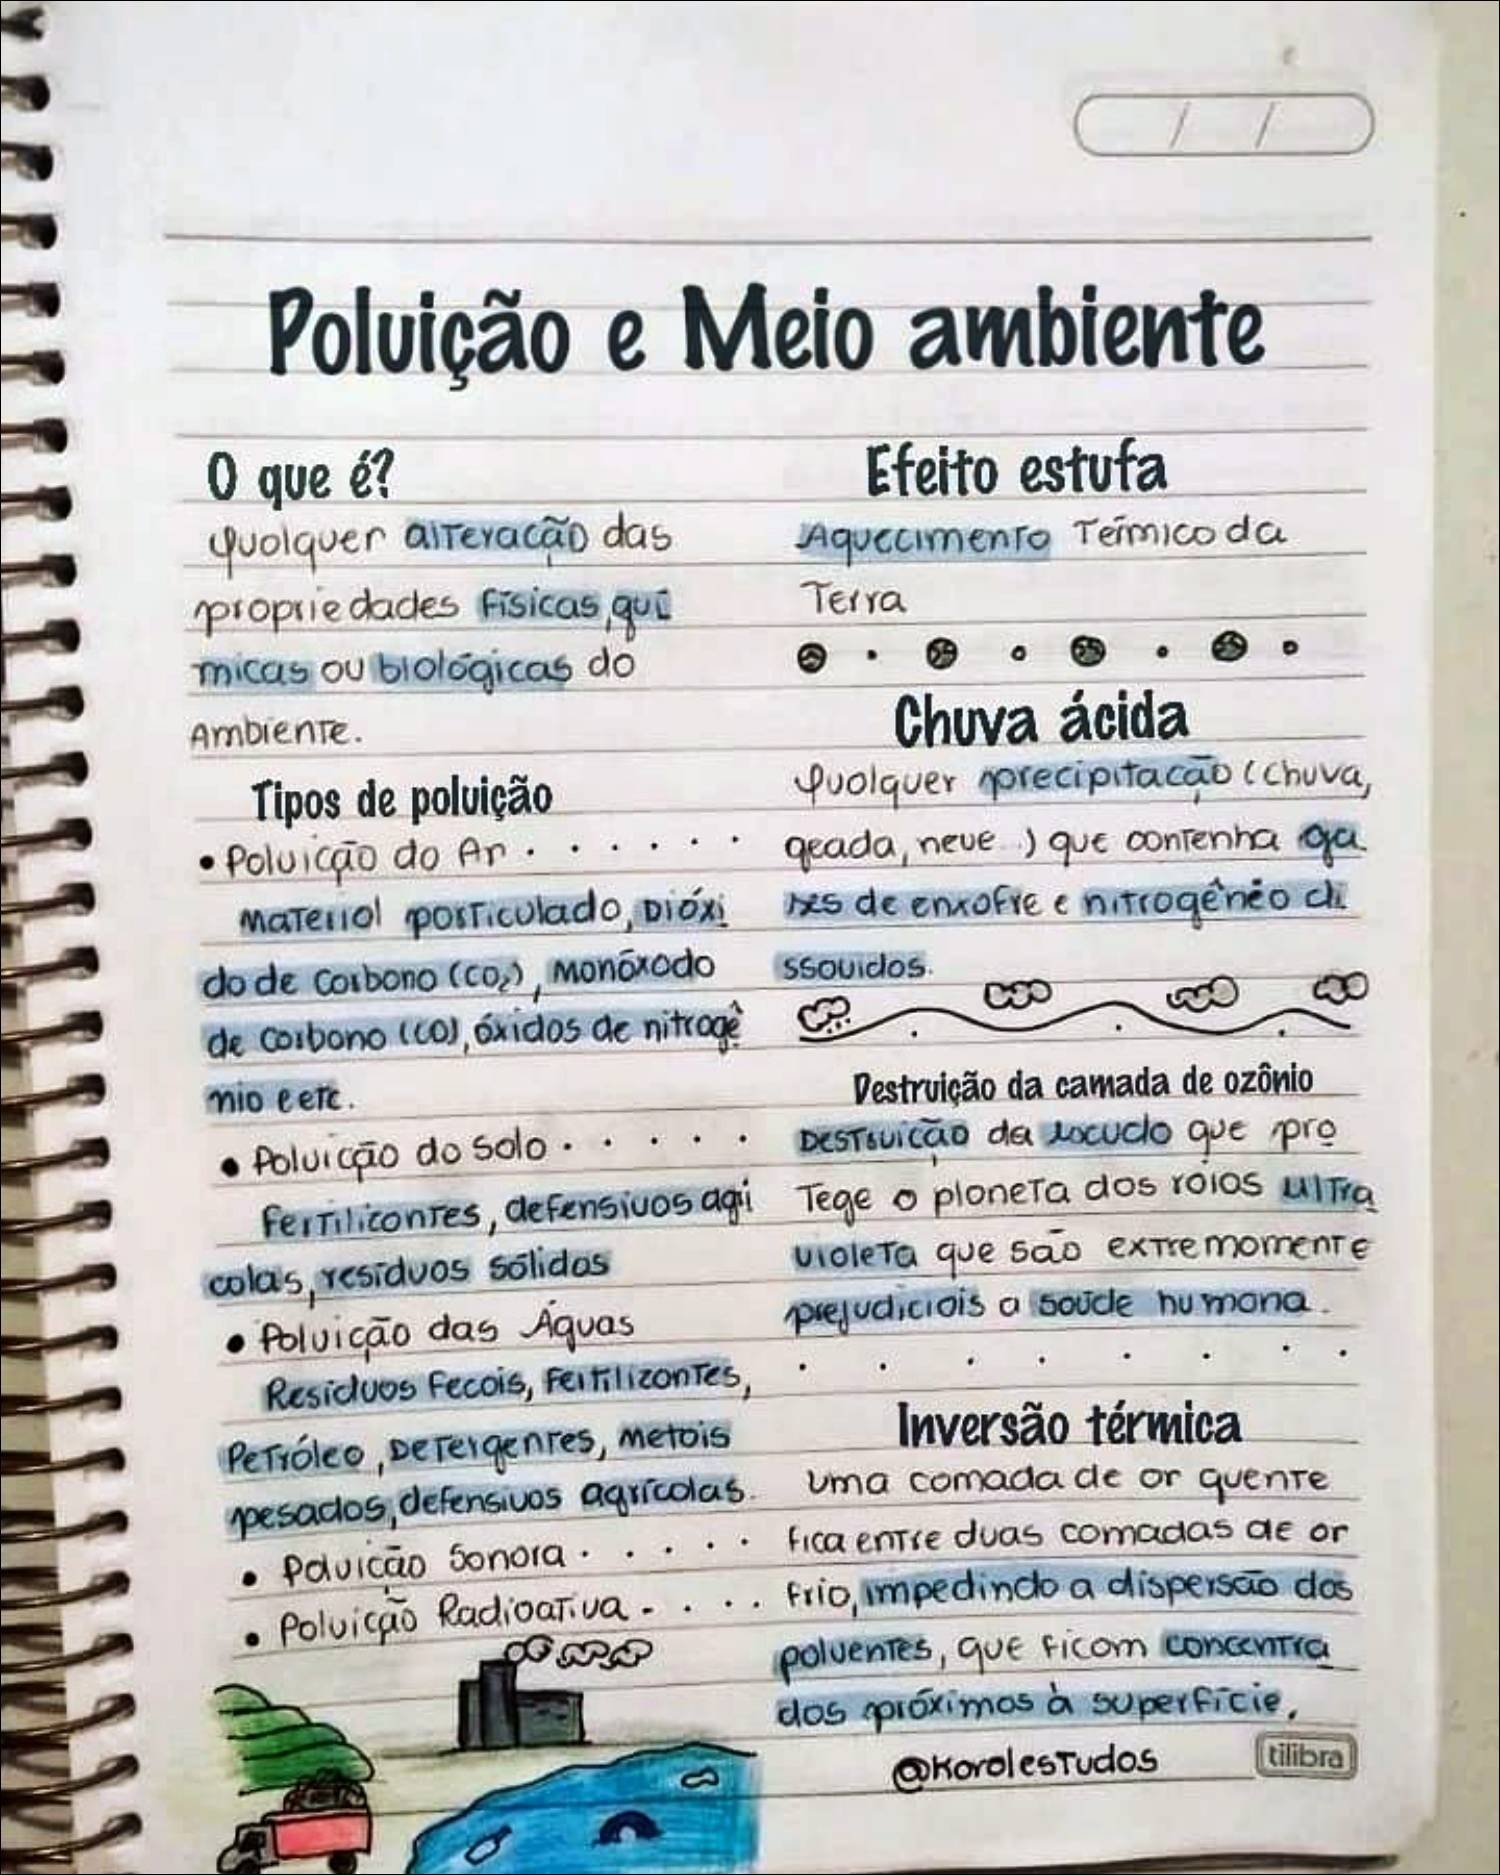 / /
Poluição e Meio ambiente
O que é?
Qualquer alteração das
propriedades físicas, quí
micas ou biológicas do
Ambiente.
Tipos de poluição
• Poluição do Ar . . . . . .
Material particulado, Dióxi
do de Carbono (CO₂), Monóxodo
de Carbono (CO), óxidos de nitrogê
nio e etc.
• Poluição do Solo . . . . .
Fertilizantes, defensivos agrí
colas, resíduos sólidos
• Poluição das Águas
Resíduos Fecais, Fertilizantes,
Petróleo, Detergentes, metais
pesados, defensivos agrícolas.
• Poluição Sonora . . . . .
• Poluição Radioativa . . . .
Efeito estufa
Aquecimento Térmico da
Terra
Chuva ácida
Qualquer precipitação (chuva,
geada, neve ..) que contenha ga
ses de enxofre e nitrogênêo di
ssouidos.
Destruição da camada de ozônio
Destruição da escudo que pro
Tege o planeta dos raios ultra
violeta que são extremamente
prejudiciais a saúde humana.
Inversão térmica
Uma camada de ar quente
fica entre duas camadas de ar
frio, impedindo a dispersão dos
poluentes, que ficam concentra
dos próximos à superfície.
@KarolesTudos
tilibra